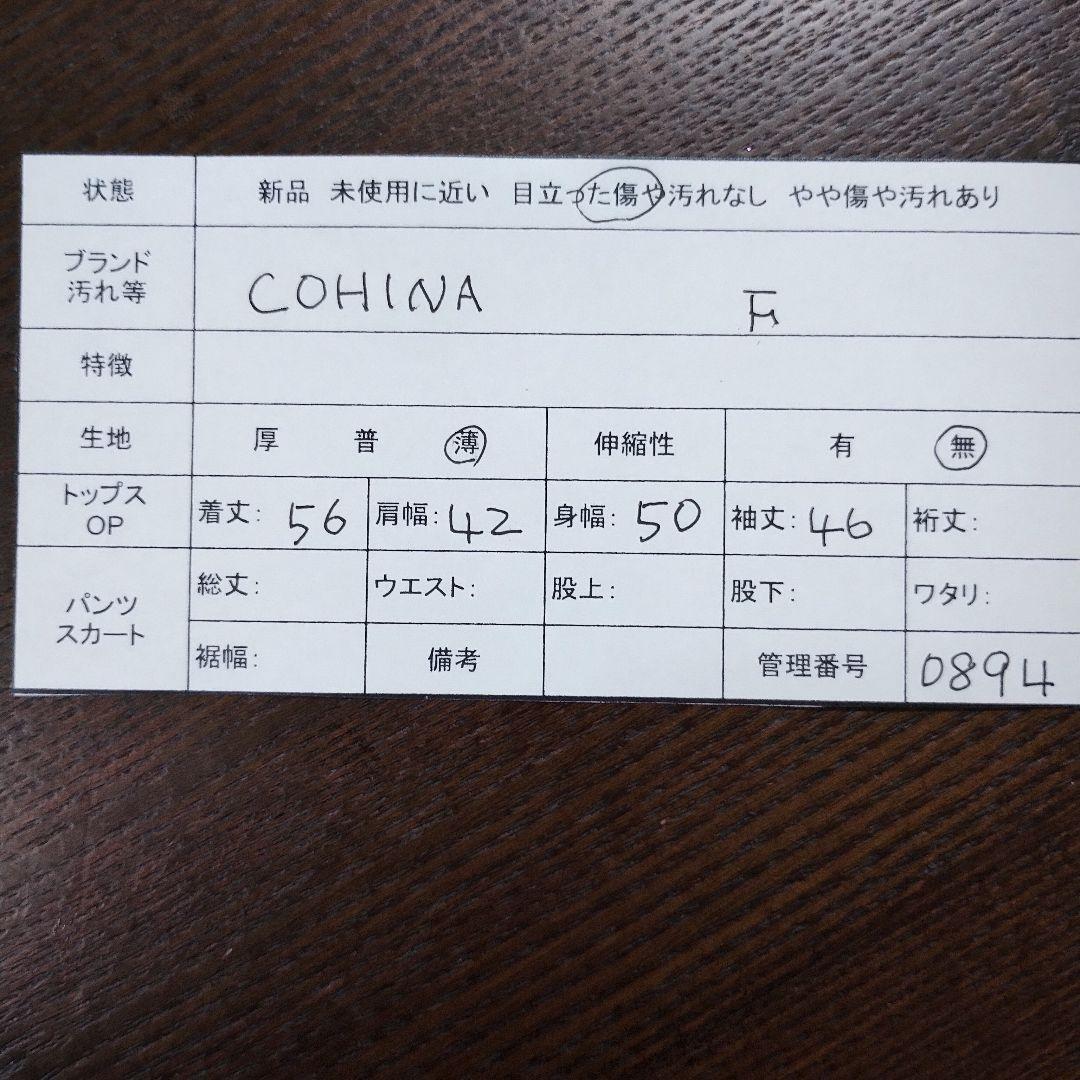 状態 新品 未使用に近い 目立った傷や汚れなし やや傷や汚れあり
ブランド
汚れ等 COHINA
特徴
生地 厚 普 薄 伸縮性 有 無
トップス
OP 着丈: 56 肩幅: 42 身幅: 50 袖丈: 46 裄丈:
パンツ
スカート 総丈: ウエスト: 股上: 股下: ワタリ:
裾幅: 備考 管理番号 0894